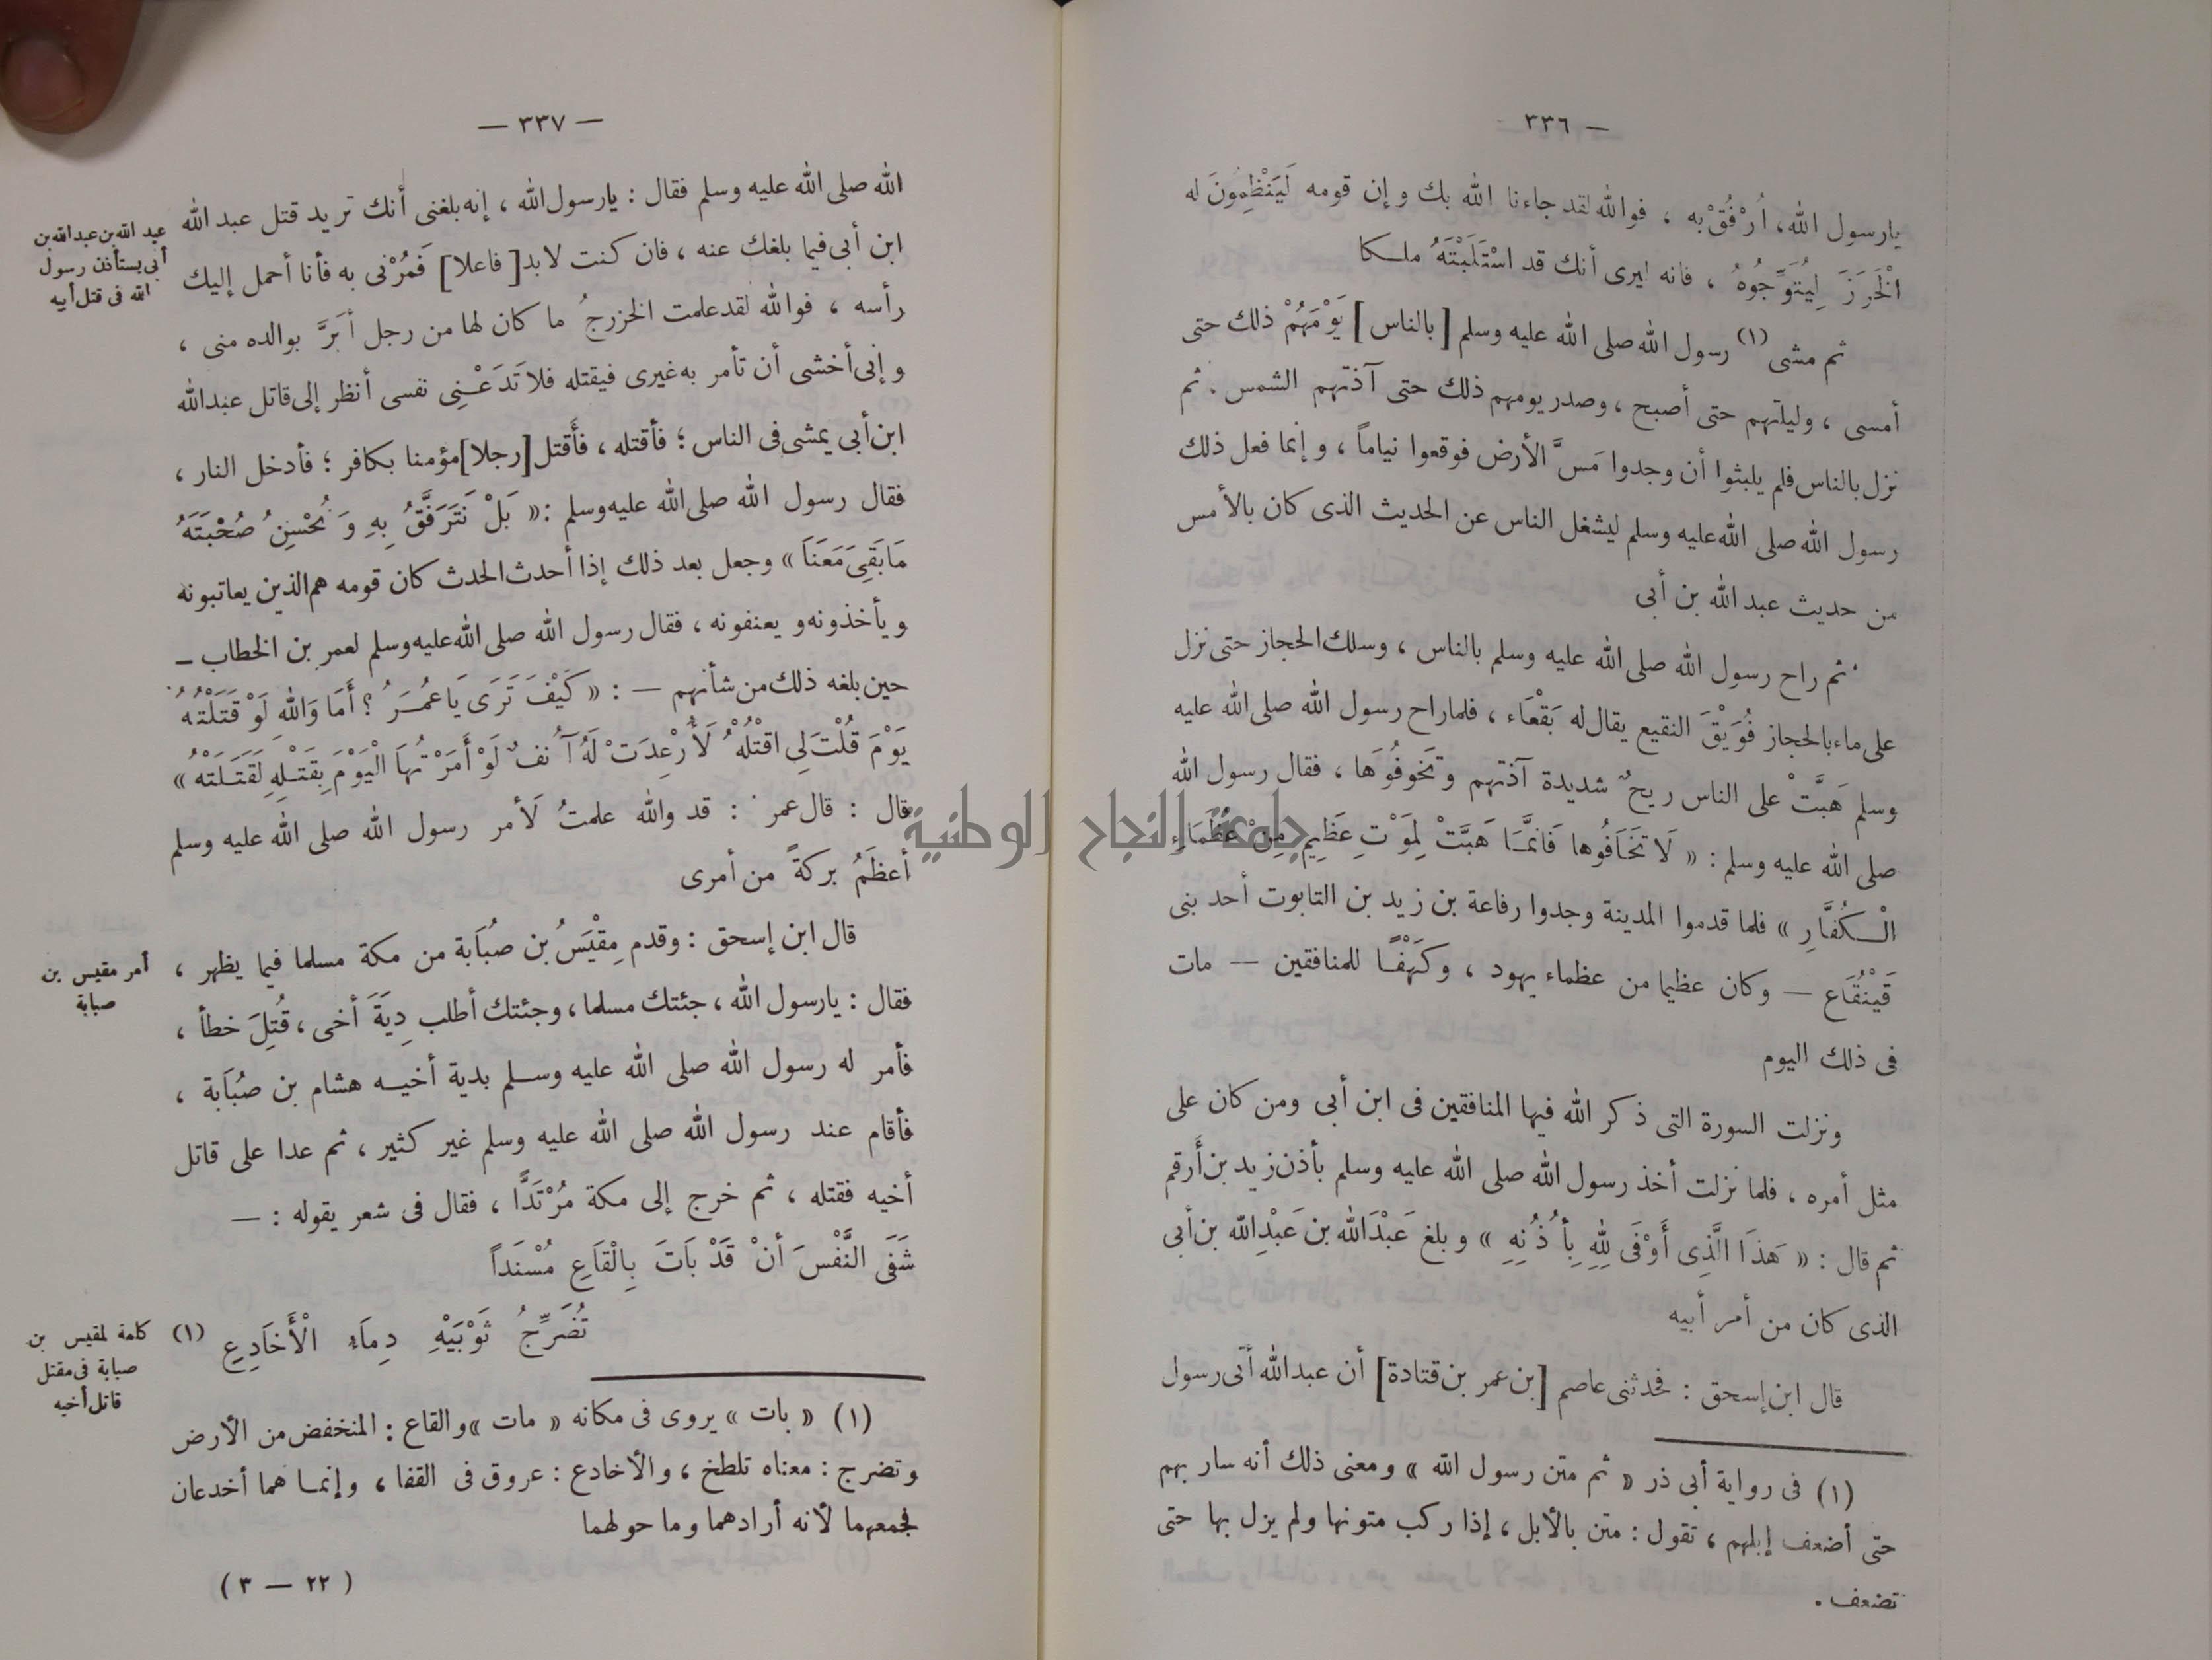 — ٣٣٦
يارسول الله، اُرْفُقْ به ، فوالله لقد جاءنا الله بك وإن قومه لَيَنْظِمُونَ له
الْخَرَزَ لِيُتَوِّجُوهُ ، فانه ليرى أنك قد اسْتَلَبْتَهُ ملكا
ثم مشى (١) رسول الله صلى الله عليه وسلم [بالناس] يَوْمَهُمْ ذلك حتى
أمسى ، وليلتهم حتى أصبح ، وصدر يومهم ذلك حتى آذتهم الشمس . ثم
نزل بالناس فلم يلبثوا أن وجدوا مَسَّ الأرض فوقعوا نياماً ، وإنما فعل ذلك
رسول الله صلى الله عليه وسلم ليشغل الناس عن الحديث الذى كان بالأمس
من حديث عبد الله بن أبى
ثم راح رسول الله صلى الله عليه وسلم بالناس ، وسلك الحجاز حتى نزل
على ماء بالحجاز فُوَيْقَ النقيع يقال له بَقْعَاء ، فلما راح رسول الله صلى الله عليه
وسلم هَبَّتْ على الناس ريحٌ شديدة آذتهم وتَخوفُوَها ، فقال رسول الله
صلى الله عليه وسلم : « لَا تَخَافُوها فَانَّمَا هَبَّتْ لِمَوْتِ عَظِيمٍ مِنْ عُظَمَاءِ
الْكُفَّارِ » فلما قدموا المدينة وجدوا رفاعة بن زيد بن التابوت أحد بنى
قَيْنُقَاع — وكان عظيما من عظماء يهود ، وكَهْفًا للمنافقين — مات
فى ذلك اليوم
ونزلت السورة التى ذكر الله فيها المنافقين فى ابن أبى ومن كان على
مثل أمره ، فلما نزلت أخذ رسول الله صلى الله عليه وسلم بأذن زيد بن أَرقم
ثم قال : « هَذَا الَّذِى أَوْفَى لِلهِ بِأُذُنِهِ » وبلغ عَبْدَ الله بن عَبْدِ الله بن أبى
الذى كان من أمر أبيه
قال ابن إسحق : فحدثنى عاصم [بن عمر بن قتادة] أن عبد الله أتى رسول
(١) فى رواية أبى ذر « ثم متن رسول الله » ومعنى ذلك أنه سار بهم
حتى أضعف إبلهم ، تقول : متن بالأبل ، إذا ركب متونها ولم يزل بها حتى
تضعف .
— ٣٣٧ —
الله صلى الله عليه وسلم فقال : يا رسول الله ، إنه بلغنى أنك تريد قتل عبد الله
ابن أبى فيما بلغك عنه ، فان كنت لا بد [فاعلا] فَمُرْنى به فأنا أحمل إليك
رأسه ، فوالله لقد علمت الخزرجُ ما كان لها من رجل أبَرَّ بوالده منى ،
وإنى أخشى أن تأمر به غيرى فيقتله فلا تَدَعْنِى نفسى أنظر إلى قاتل عبد الله
ابن أبى يمشى فى الناس ؛ فأقتله ، فأَقتل [رجلا] مؤمنا بكافر ؛ فأدخل النار ،
فقال رسول الله صلى الله عليه وسلم : « بَلْ نَتَرَفَّقُ بِهِ وَنُحْسِنُ صُحْبَتَهُ
مَا بَقِىَ مَعَنَا » وجعل بعد ذلك إذا أحدث الحدث كان قومه هم الذين يعاتبونه
ويأخذونه ويعنفونه ، فقال رسول الله صلى الله عليه وسلم لعمر بن الخطاب —
حين بلغه ذلك من شأنهم — : « كَيْفَ تَرَى يَا عُمَرُ ؟ أَمَا وَاللهِ لَوْ قَتَلْتُهُ
يَوْمَ قُلْتَ لِى اقْتُلْهُ لَأُرْعِدَتْ لَهُ آنُفٌ لَوْ أَمَرْتُهَا الْيَوْمَ بِقَتْلِهِ لَقَتَلَتْهُ »
قال : قال عمر : قد والله علمتُ لَأمر رسول الله صلى الله عليه وسلم
أعظَمُ بركةً من أمرى
قال ابن إسحق : وقدم مِقْيَسُ بن صُبَابة من مكة مسلما فيما يظهر ،
فقال : يا رسول الله ، جئتك مسلما ، وجئتك أطلب دِيَةَ أخى ، قُتِلَ خطأ ،
فأمر له رسول الله صلى الله عليه وسلم بدية أخيه هشام بن صُبَابة ،
فأقام عند رسول الله صلى الله عليه وسلم غير كثير ، ثم عدا على قاتل
أخيه فقتله ، ثم خرج إلى مكة مُرْتَدًّا ، فقال فى شعر يقوله : —
شَفَى النَّفْسَ أنْ قَدْ بَاتَ بِالْقَاعِ مُسْنَداً
تُضَرِّجُ ثَوْبَيْهِ دِمَاءِ الْأَخَادِعِ (١)
(١) « بات » يروى فى مكانه « مات » والقاع : المنخفض من الأرض
وتضرج : معناه تلطخ ، والأخادع : عروق فى القفا ، وإنما هما أخدعان
فجمعهما لأنه أرادهما وما حولهما
( ٢٢ — ٣ )
عبد الله بن عبد الله بن
أبى يستأذن رسول
الله فى قتل أبيه
أمر مقيس بن
صبابة
كلمة لمقيس بن
صبابة فى مقتل
قاتل أخيه
جامعة النجاح الوطنية